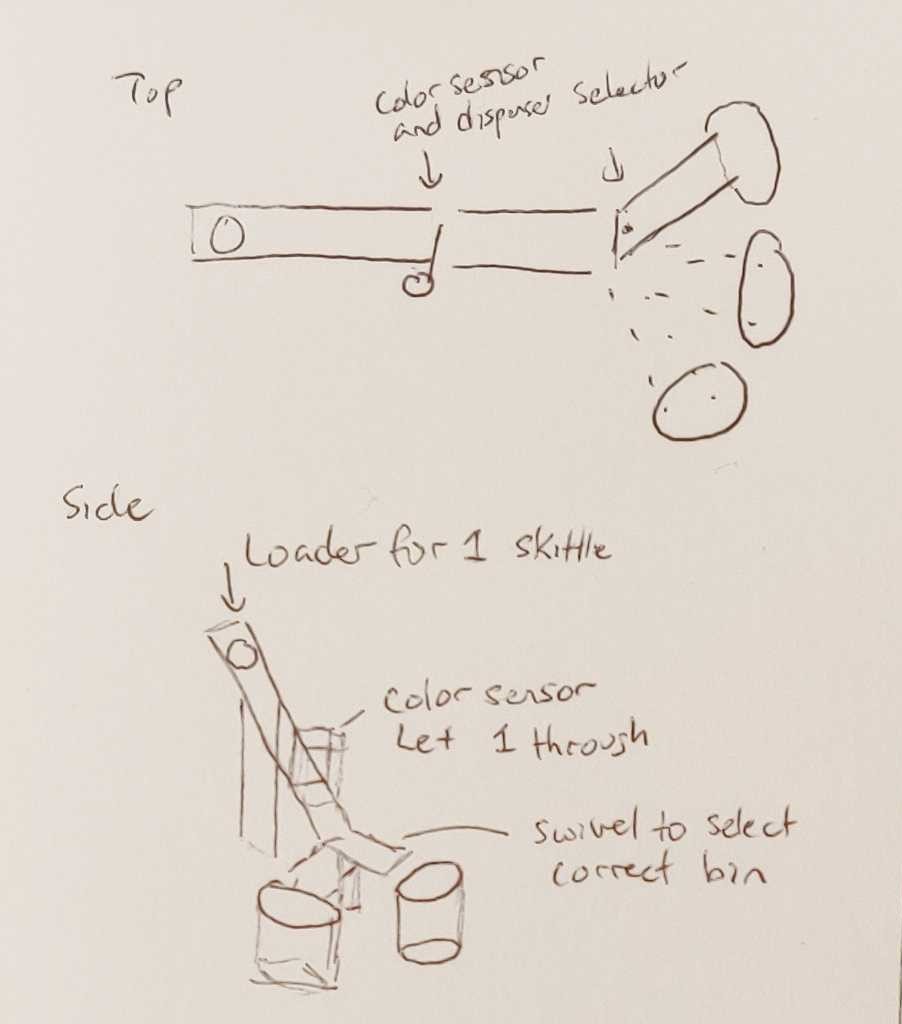 Top
color sensor
and dispense selector
Side
Loader for 1 skittle
color sensor
Let 1 through
swivel to select
correct bin